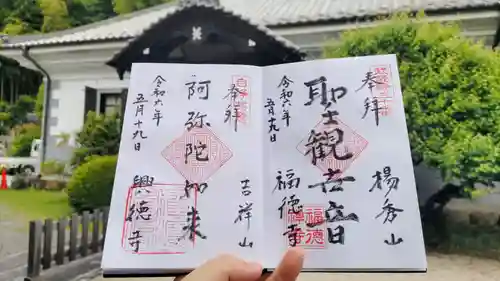 奉拝
楊秀山
聖観世音
福徳寺
令和六年
五月十九日
奉拝
吉祥山
阿弥陀如来
興徳寺
令和六年
五月十九日